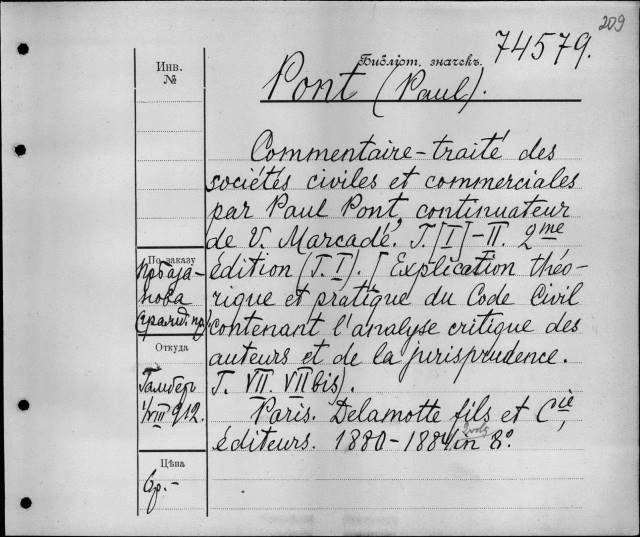 209
74579.
Библіот. значекъ.
Pont (Paul).
Инв.
№
Commentaire-traité des
sociétés civiles et commerciales
par Paul Pont, continuateur
de V. Marcadé. T. [I]-II. 2me
édition (T. I). [Explication théo-
rique et pratique du Code Civil
contenant l'analyse critique des
auteurs et de la jurisprudence.
T. VII. VII bis).
Paris. Delamotte fils et Cie,
éditeurs. 1880-1884 in 8º.
2 vols
По заказу
Откуда
1/VIII 912.
Цѣна
6р.-